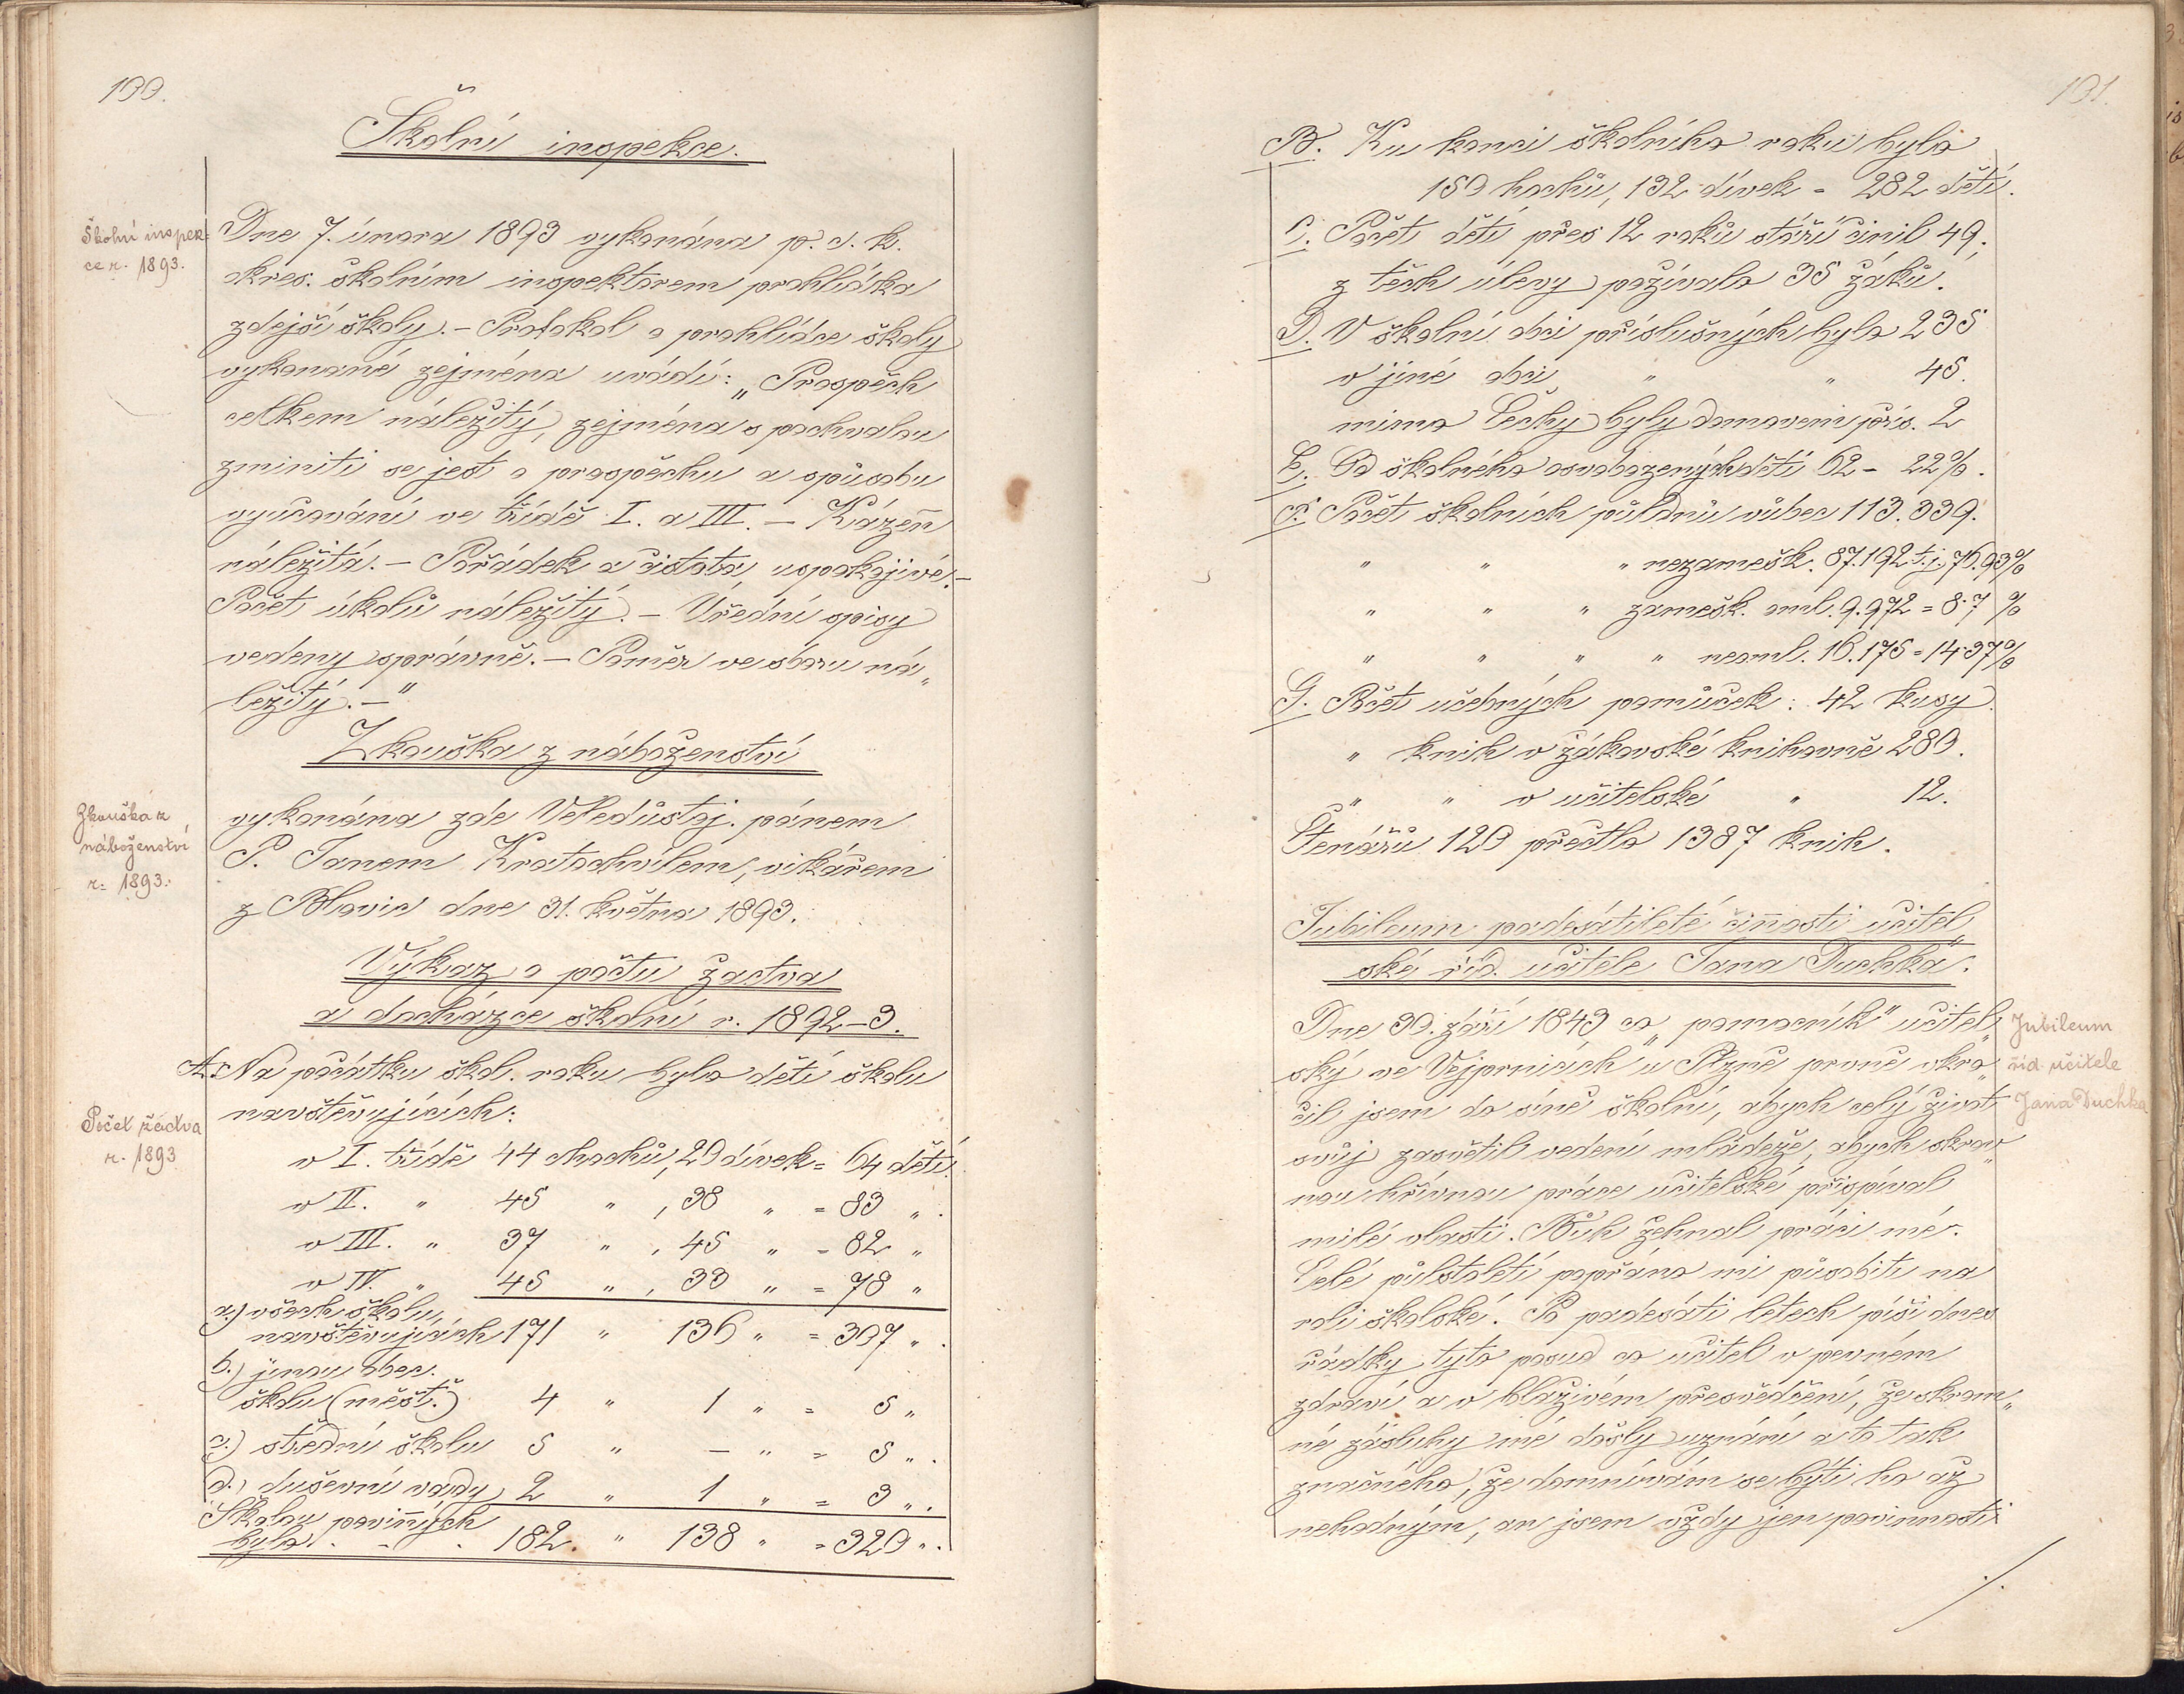 100.
Školní inspekce.
Školní inspek=
ce r. 1893.
Dne 7. února 1893 vykonána p. c. k.
okres. školním inspektorem prohlídka
zdejší školy. – Protokol o prohlídce školy
vykonané zejména uvádí: „Prospěch
celkem náležitý, zejména s pochvalou
zmíniti se jest o prospěchu a způsobu
vyučování ve třídě I. a III. – Kázeň
náležitá. – Pořádek a čistota, uspokojivé. –
Počet úkolů náležitý. – Úřední spisy
vedeny správně. – Poměr ve sboru ná„
ležitý. –"
Zkouška z náboženství
Zkouška z
náboženství
r. 1893.
vykonána zde Veledůstoj. pánem
P. Janem Kratochvílem, vikářem
z Blovic dne 31. května 1893.
Výkaz o počtu žactva
a docházce školní r. 1892–3.
Počet žactva
r. 1893
A. Na počátku škol. roku bylo dětí školu
navštěvujících:
v I. třídě 44 chochů, 20 dívek = 64 dětí.
v II. " 45 " , 38 " = 83 " .
v III. " 37 " , 45 " = 82 "
v IV. " 45 " , 33 " = 78 "
a.) všech školu
navštěvujících 171 " 136 " = 307 " .
b.) jinou obec.
školu (měšť.) 4 " 1 " = 5 "
c.) střední školu 5 " – " = 5 " .
d.) duševní vady 2 " 1 " = 3 " .
Školou povinných
bylo . . . 182. " 138 " = 320 " .
101.
B. Ku konci školního roku bylo
150 hochů, 132 dívek = 282 dětí.
C. Počet dětí přes 12 roků stáří činil 49,
z těch úlevy požívalo 35 žáků.
D. V školní obci příslušných bylo 235
v jiné obci " " 45.
mimo Čechy byly domovem přís. 2
E. Od školného osvobozených dětí 62 – 22%.
F. Počet školních půldnů vůbec 113.339.
" " " nezamešk. 87.192 t.j. 76.93%
" " " zamešk. oml. 9.972 = 8.7 %
" " " " neoml. 16.175 = 14.37%
G. Počet učebných pomůcek: 42 kusy.
" knih v žákovské knihovně 280.
" " v učitelské " 12.
Čtenářů 120 přečtlo 1387 knih.
Jubileum padesátileté činnosti učitel„
ské říd. učitele Jana Duchka.
Jubileum
říd. učitele
Jana Duchka
Dne 30. září 1843 co „pomocník" učitel„
ský ve Vejprnicích u Plzně prvně vkro„
čil jsem do síně školní, abych celý život
svůj zasvětil vedení mládeže, abych skrov„
nou hřivnou práce učitelské přispíval
milé vlasti. Bůh žehnal práci mé.
Celé půlstoletí popřáno mi působiti na
roli školské. Po padesáti letech píši dnes
řádky tyto posud co učitel v pevném
zdraví a v blaživém přesvědčení, že skrom„
né zásluhy mé došly uznání a to tak
značného, že domnívám se býti ho až
nehodným, an jsem vždy jen povinnosti
./.